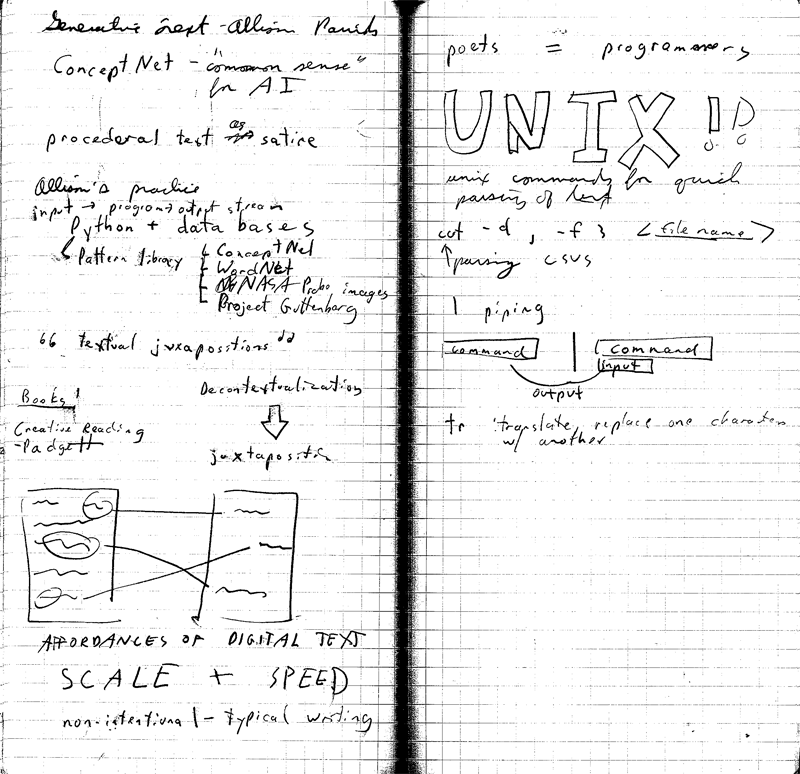 Generative text - Allison Parrish
ConceptNet - "common sense"
for AI
procederal text as satire
Allison's practice
input → program → output stream
Python + data bases
Pattern library
ConceptNet
WordNet
NASA Probe images
Project Guttenberg
"textual juxapositions"
Decontextualization
Books!
Creative Reading
- Padgett
juxtaposition
AFFORDANCES OF DIGITAL TEXT
SCALE + SPEED
non-intentional - typical writing
poets = programmers
UNIX!?
unix commands for quick
parsing of text
cut -d , -f 3 <file name>
↑ parsing csvs
| piping
command | command
input
output
tr translate, replace one character
w/ another